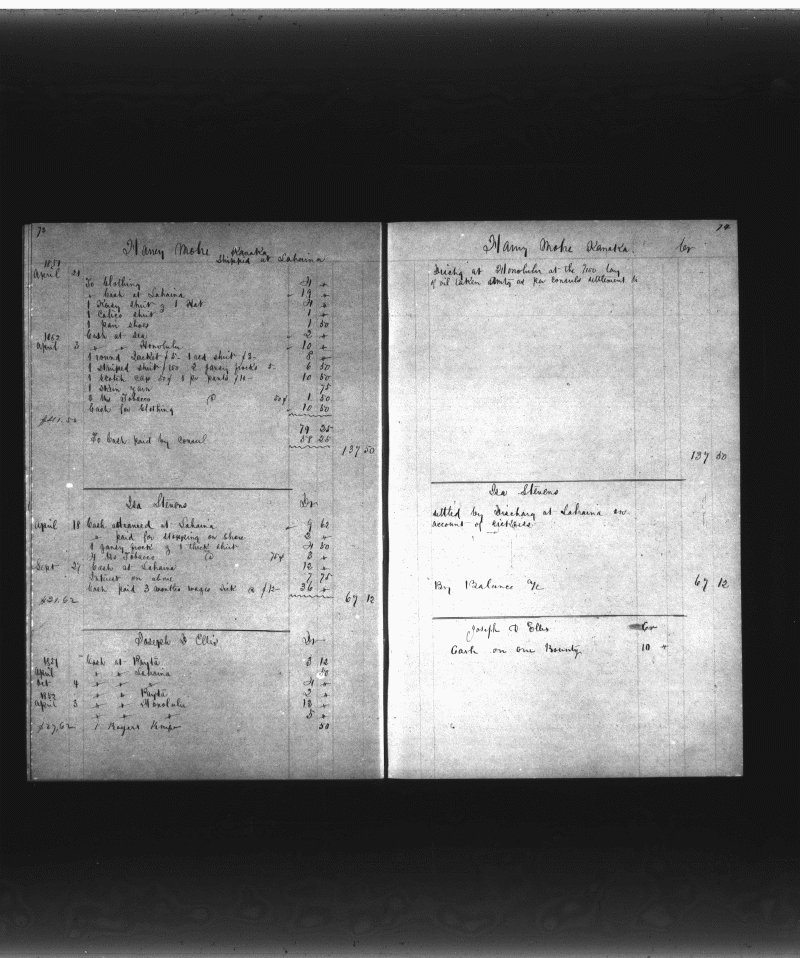 73
Harry Mohe Kanaka
Shipped at Lahaina
1851
April
To Clothing 4 "
" Cash at Lahaina 19 "
1 Gansy shirt & 1 Hat 4 "
1 Calico shirt 1 "
1 pair shoes 1 50
Cash at Sea 2 "
1852
April 3 " " Honolulu 10 "
1 round Jacket /5- 1 red shirt /3- 8 "
1 striped shirt /150 2 gansy frocks 5- 6 50
1 scotch cap 50¢ 1 pr pants 10 50
1 skein yarn 75
3 lbs Tobacco @ 50¢ 1 50
Cash for Clothing 10 50
79 25
To Cash paid by consul 58 25
137 50
Isa Stevens Dr
April 18 Cash advanced at Lahaina 9 62
" paid for stopping on shore 2 "
1 gansy frock & 1 thick shirt 4 50
4 lbs Tobacco @ 75¢ 3 "
Sept 27 Cash at Lahaina 12 "
Interest on above 7, 75
Cash paid 3 months wages Sick @ /12- 36 "
$31.62 67 12
Joseph D Ellis Dr
1851 Cash at Payta 3 12
April " " Lahaina 50
Oct 4 " " " 4 "
1852 " " Payta 2 "
April 3 " " Honolulu 13 "
" " " 5 "
$27,62 1 Rogers Knife 50
74
Harry Mohe Kanaka. Cr
Dischg at Honolulu at the 700 lay
of oil taken as per consuls settlement
137 50
Isa Stevens
settled by Discharg at Lahaina on
account of sickness
By Balance a/c 67 12
Joseph D Ellis Cr
Cash on one Bounty 10 "